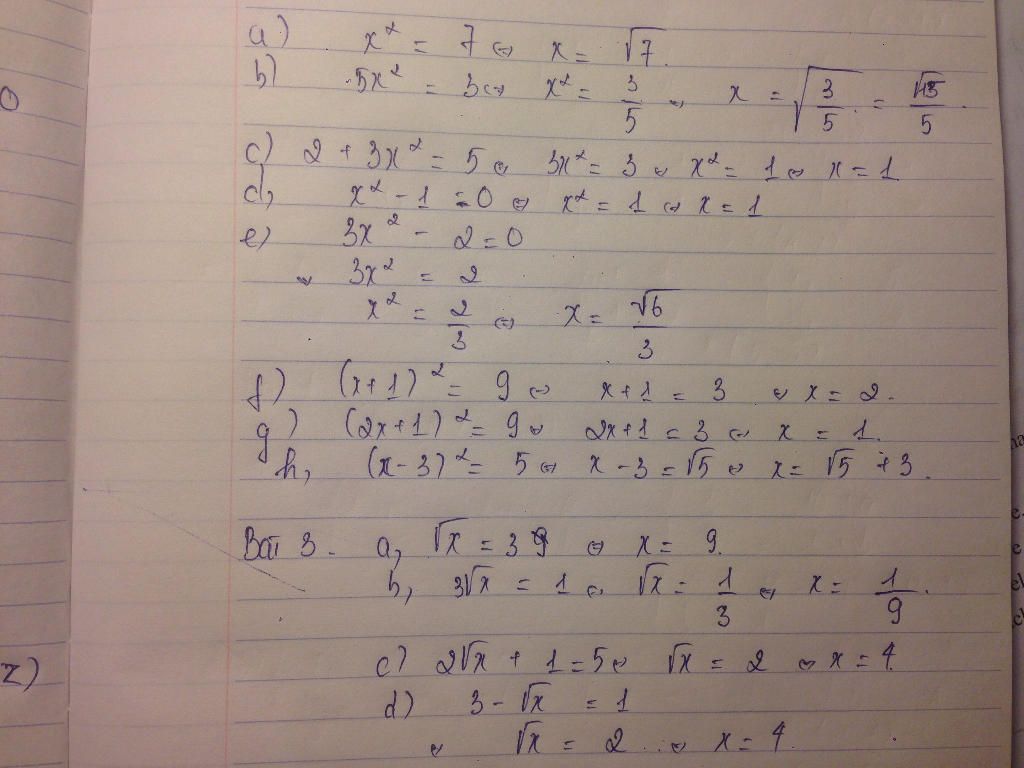 a) x² = 7 ⇔ x = √7.
b) 5x² = 3 ⇔ x² = 3/5 ⇔ x = √(3/5) = √15/5.
c) 2 + 3x² = 5 ⇔ 3x² = 3 ⇔ x² = 1 ⇔ x = 1
d, x² - 1 = 0 ⇔ x² = 1 ⇔ x = 1
e) 3x² - 2 = 0
⇔ 3x² = 2
x² = 2/3 ⇔ x = √6/3
f) (x+1)² = 9 ⇔ x+1 = 3 ⇔ x = 2.
g) (2x+1)² = 9 ⇔ 2x+1 = 3 ⇔ x = 1.
h, (x-3)² = 5 ⇔ x-3 = √5 ⇔ x = √5 + 3.
Bài 3. a, √x = 3 ⇔ x = 9.
b, 3√x = 1 ⇔ √x = 1/3 ⇔ x = 1/9.
c) 2√x + 1 = 5 ⇔ √x = 2 ⇔ x = 4.
d) 3 - √x = 1
⇔ √x = 2 ⇔ x = 4.